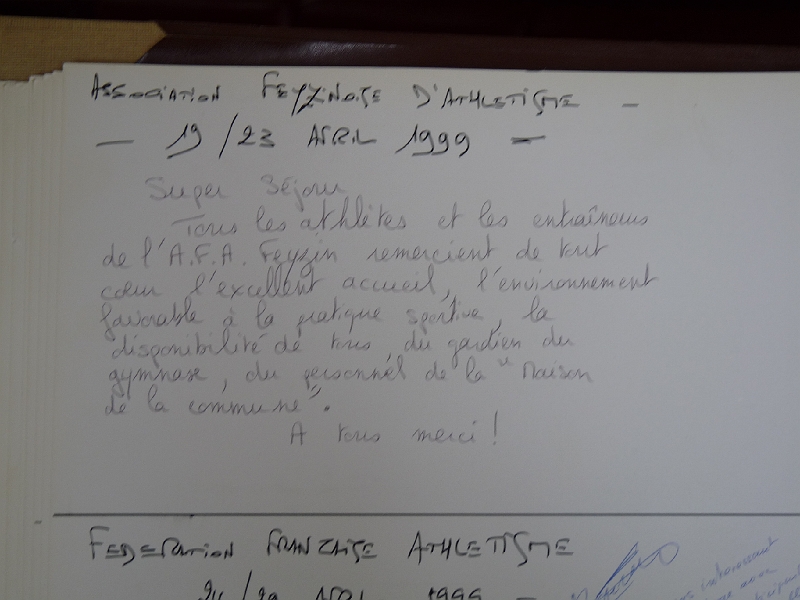 ASSOCIATION FEYZINOISE D'ATHLETISME —
— 19/23 AVRIL 1999 —
Super Séjour
Tous les athlètes et les entraîneurs
de l'A.F.A. Feyzin remercient de tout
cœur l'excellent accueil, l'environnement
favorable à la pratique sportive, la
disponibilité de tous, du gardien du
gymnase, du personnel de la "Maison
de la commune".
A tous merci !
FEDERATION FRANCAISE ATHLETISME
AVRIL 1999 —
intéressant